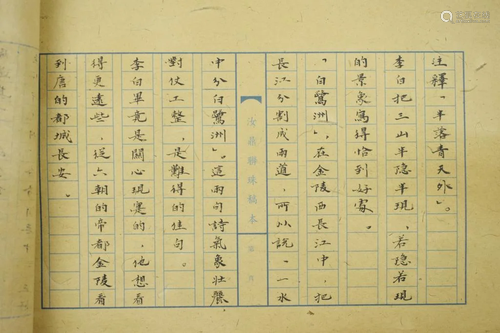 注釋「半落青天外」。
李白把三山半隐半現,若隐若現
的景象寫得恰到好處。
「白鷺洲」,在金陵西長江中,把
長江分割成兩道,所以說,「一水
聯珠稿本】
中分白鷺洲」。這兩句詩氣象壯麗
對仗工整,是難得的佳句。
李白畢竟是關心現實的,他想看
得更遠些,從六朝的帝都金陵看
到唐的都城長安。